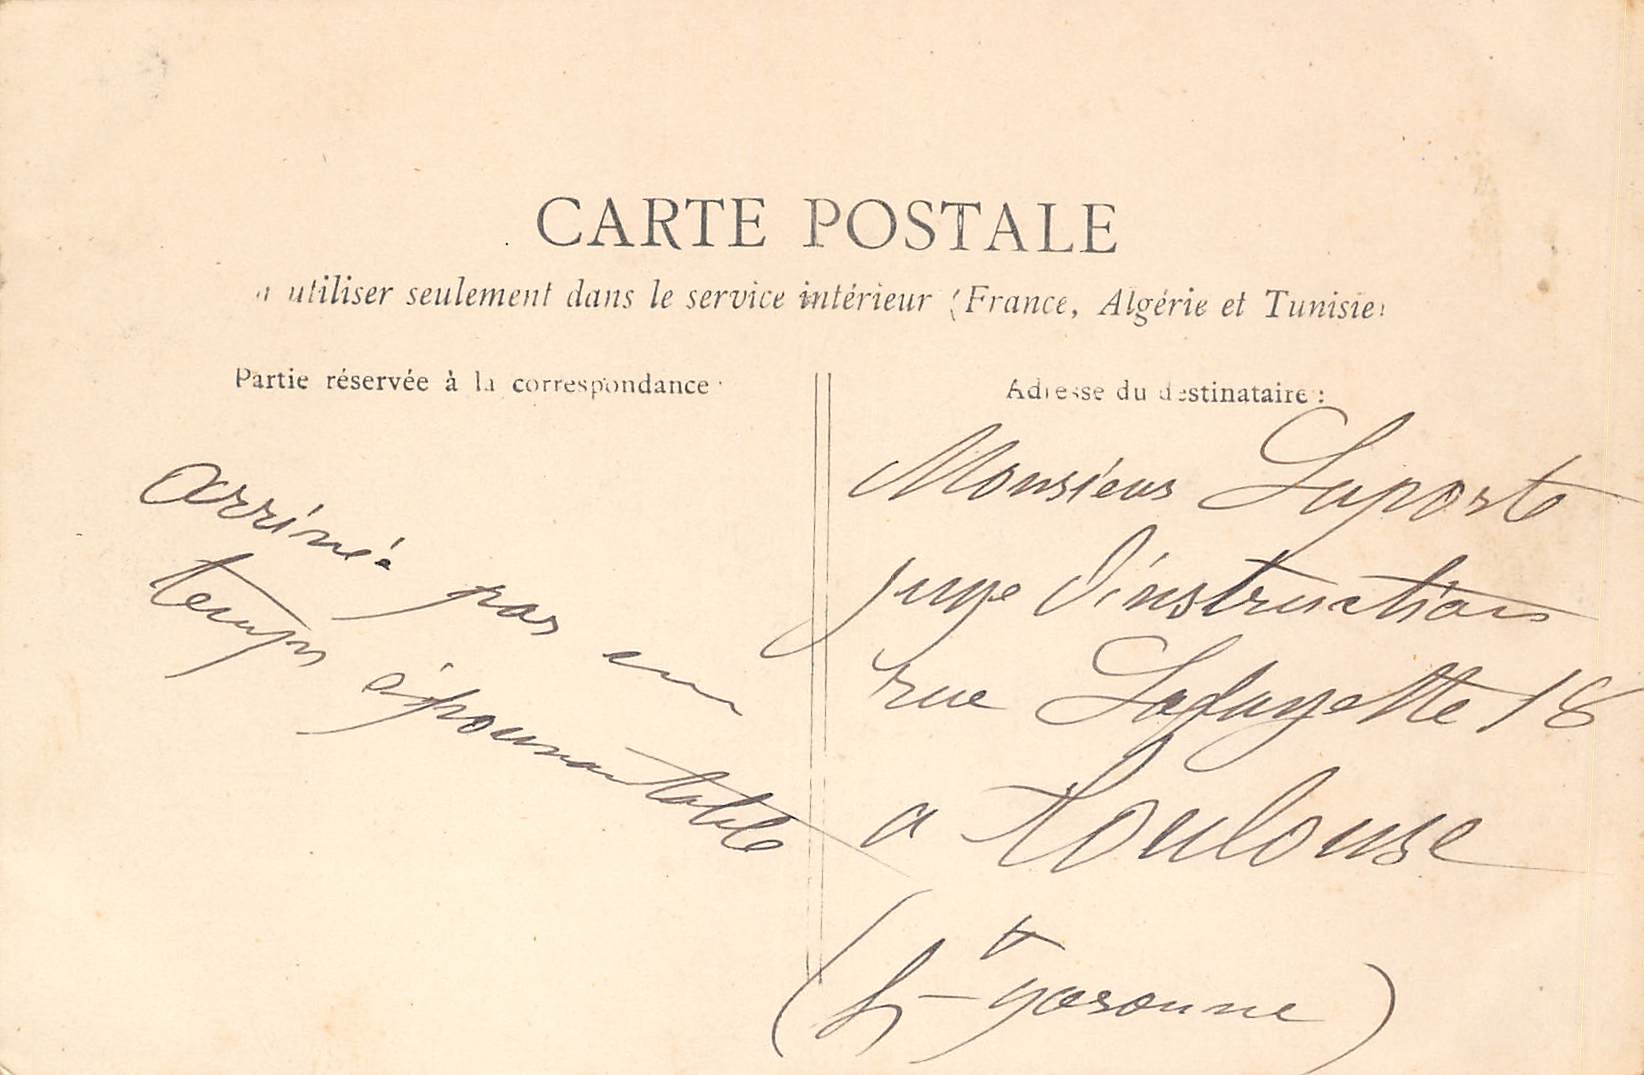 CARTE POSTALE
à utiliser seulement dans le service intérieur (France, Algérie et Tunisie)
Partie réservée à la correspondance
arrivé par un
temps épouvantable
Adresse du destinataire :
Monsieur Laporte
juge d'instruction
rue Lafayette 18
a Toulouse
(Hte garonne)